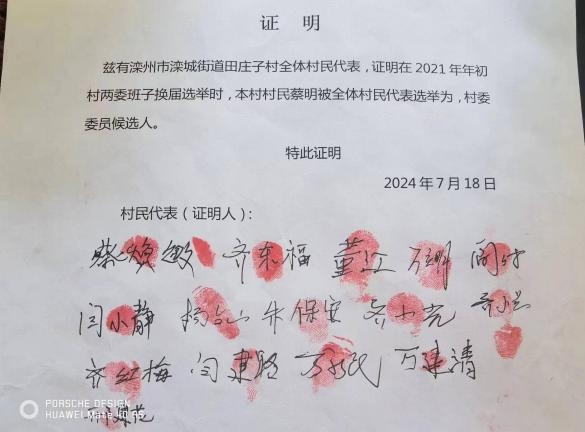 证 明
兹有滦州市滦城街道田庄子村全体村民代表，证明在 2021 年年初
村两委班子换届选举时，本村村民蔡明被全体村民代表选举为，村委
委员候选人。
特此证明
2024 年 7 月 18 日
村民代表（证明人）：
蔡焕敏 齐东福 董江
闫小静 朱保安
齐红梅 闫建 万建清
PORSCHE DESIGN
HUAWEI Mate 10 RS